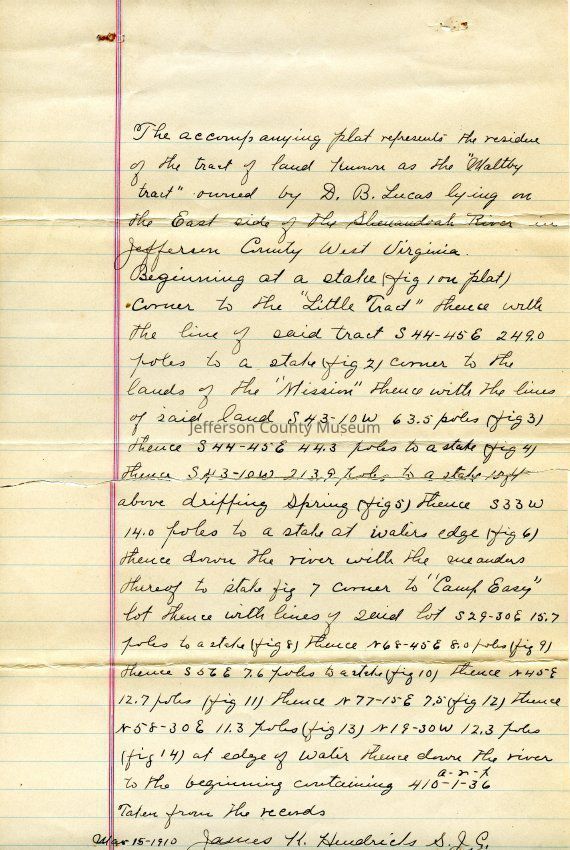 The accompanying plat represents the residue
of the tract of land known as the "Maltby
tract" owned by D. B. Lucas lying on
the East side of the Shenandoah River in
Jefferson County West Virginia.
Beginning at a stake (fig 1 on plat)
corner to the "Little Tract" thence with
the line of said tract S 44-45 E 249.0
poles to a stake (fig 2) corner to the
lands of the "Mission" thence with the lines
of said land S 43-10 W 63.5 poles (fig 3)
Jefferson County Museum
thence S 44-45 E 44.3 poles to a stake (fig 4)
thence S 43-10 W 213.9 poles to a stake
above dripping Spring (fig 5) thence S 33 W
14.0 poles to a stake at waters edge (fig 6)
thence down the river with the meanders
thereof to stake fig 7 corner to "Camp Easy"
lot thence with lines of said lot S 29-30 E 15.7
poles to a stake (fig 8) thence N 68-45 E 8.0 poles (fig 9)
thence S 56 E 7.6 poles to a stake (fig 10) thence N 45 E
12.7 poles (fig 11) thence N 77-15 E 7.5 (fig 12) thence
N 58-30 E 11.3 poles (fig 13) N 19-30 W 12.3 poles
(fig 14) at edge of water thence down the river
a-r-p
to the beginning containing 410-1-36
Taken from the records
Mar 15-1910 James K. Hendricks S.J.C.